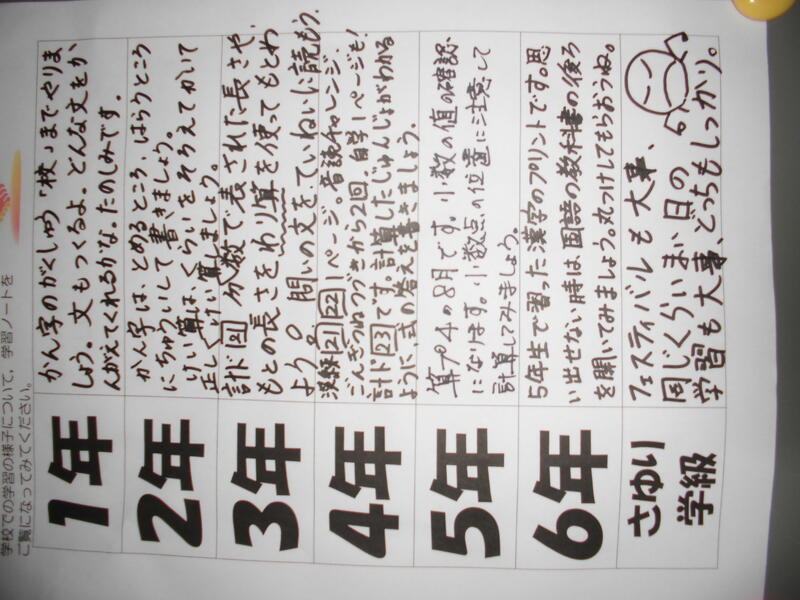 学校での学習の様子について、学習ノートを
ご覧になってみてください。
1年
かん字のがくしゅう「校」までやりま
しょう。文もつくるよ。どんな文をか
んがえてくれるかな。たのしみです。
2年
かん字は、とめるところ、はらうところ
にちゅういして書きましょう。
けい算は、くらいをそろえてかいて
正しくけい算しましょう。
3年
計ド21 分数で表された長さや、
もとの長さをわり算を使ってもとめ
よう。 問いの文をていねいに読もう。
4年
漢練21 22ページ。音読チャレンジ、
ごんぎつねつづきから2回、自学1ページも!
計ド23です。計算したじゅんじょがわかる
ように、式の答えを書きましょう。
5年
算プ4の8月です。小数の値の確認
になります。小数点の位置に注意して
計算してみましょう。
6年
5年生で習った漢字のプリントです。思
い出せない時は国語の教科書の後ろ
を開いてみましょう。丸つけしてもらおうね。
さゆり
学級
フェスティバルも大事、
同じくらいまい日の
学習も大事、どっちもしっかり。